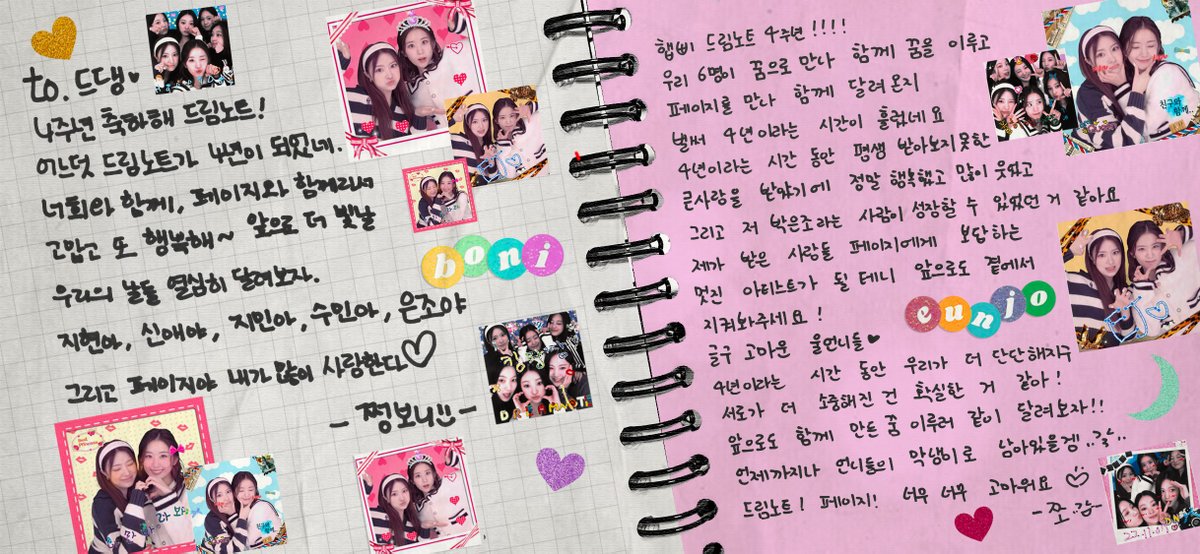 to. 드댕♥
4주년 축하해 드림노트!
어느덧 드림노트가 4년이 되었네.
너희와 함께, 페이지와 함께라서
고맙고 또 행복해~ 앞으로 더 빛날
우리의 날들 열심히 달려보자.
지현아, 신애야, 지민아, 수민아, 은조야
그리고 페이지야 내가 많이 사랑한다♡
- 쩡보니!! -
boni
햅삐 드림노트 4주년!!!!
우리 6명이 꿈으로 만나 함께 꿈을 이루고
페이지를 만나 함께 달려온지
벌써 4년이라는 시간이 흘렀네요
4년이라는 시간 동안 평생 받아보지못한
큰사랑을 받았기에 정말 행복했고 많이 웃었고
그리고 저 박은조라는 사람이 성장할 수 있었던 거 같아요
제가 받은 사랑들 페이지에게 보답하는
멋진 아티스트가 될 테니 앞으로도 곁에서
지켜봐주세요!
eunjo
글구 고마운 울언니들♥
4년이라는 시간 동안 우리가 더 단단해지구
서로가 더 소중해진 건 확실한 거 같아!
앞으로도 함께 만든 꿈 이루러 같이 달려보자!!
언제까지나 언니들의 막냉이로 남아있을겡
드림노트! 페이지! 너무 너무 고마워요♡
친구와
함께..